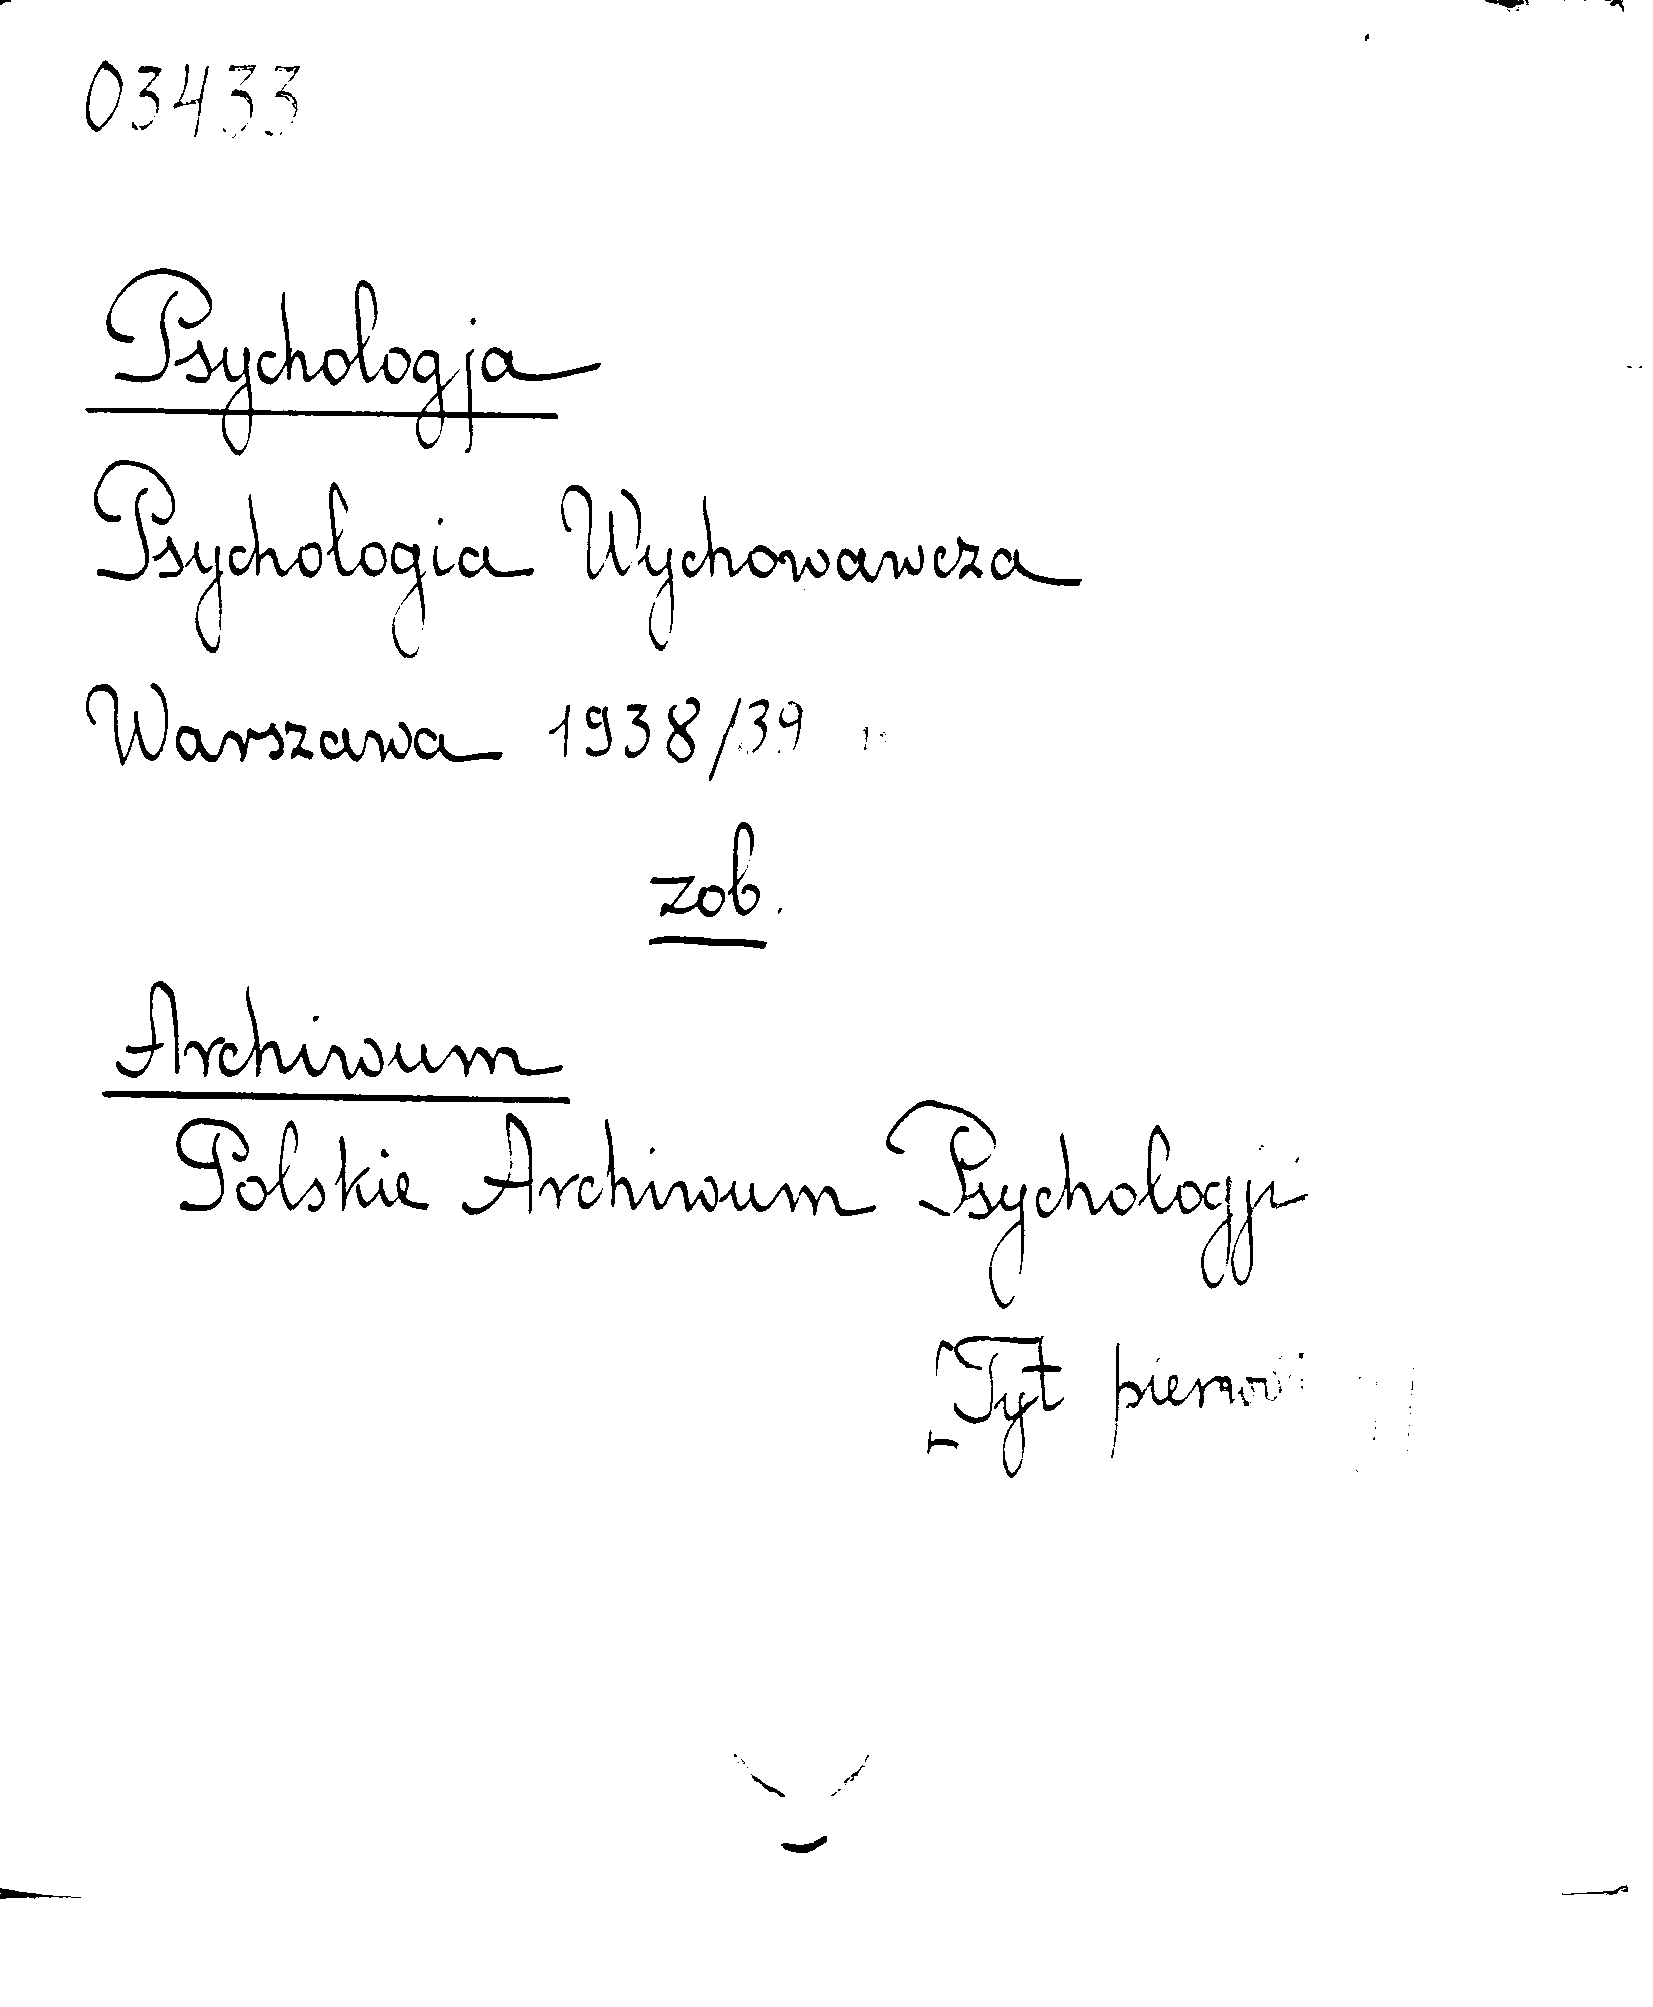 03433
Psychologja
Psychologia Wychowawcza
Warszawa 1938/39
zob.
Archiwum
Polskie Archiwum Psychologji
[Tyt